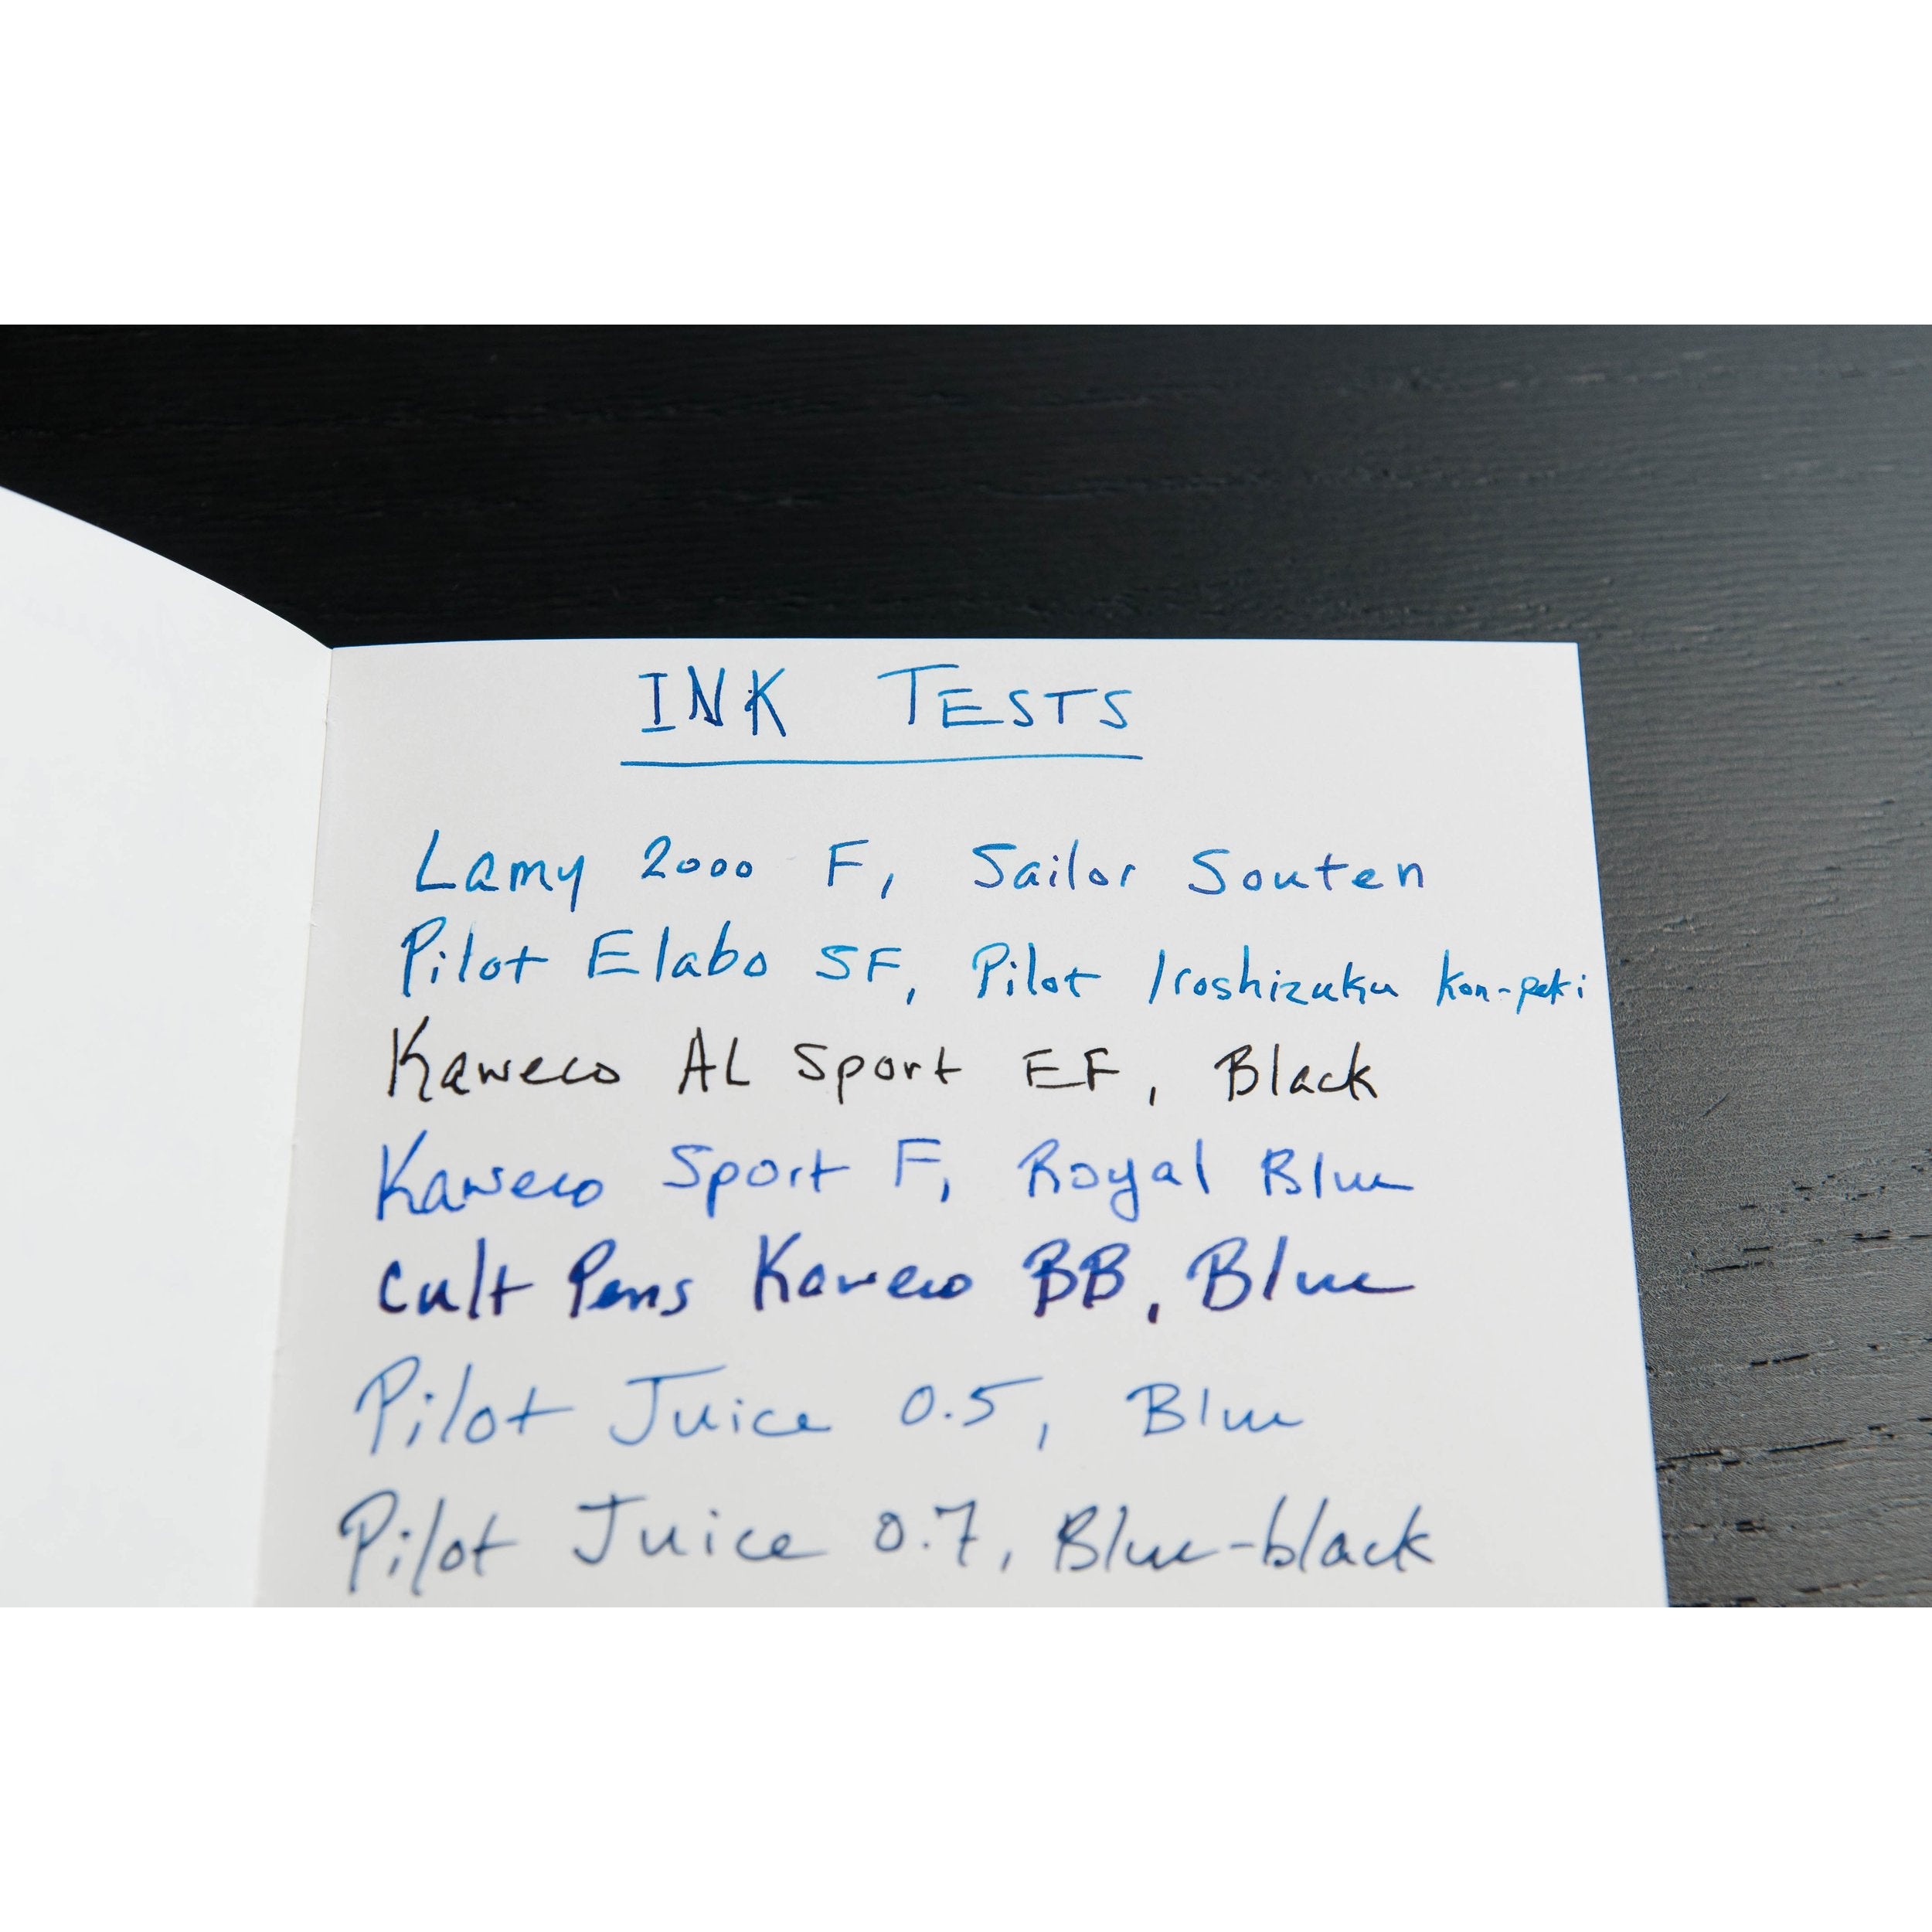 INK TESTS
Lamy 2000 F, Sailor Souten
Pilot Elabo SF, Pilot Iroshizuku Kon-peki
Kaweco AL Sport EF, Black
Kaweco Sport F, Royal Blue
Cult Pens Kaweco BB, Blue
Pilot Juice 0.5, Blue
Pilot Juice 0.7, Blue-black